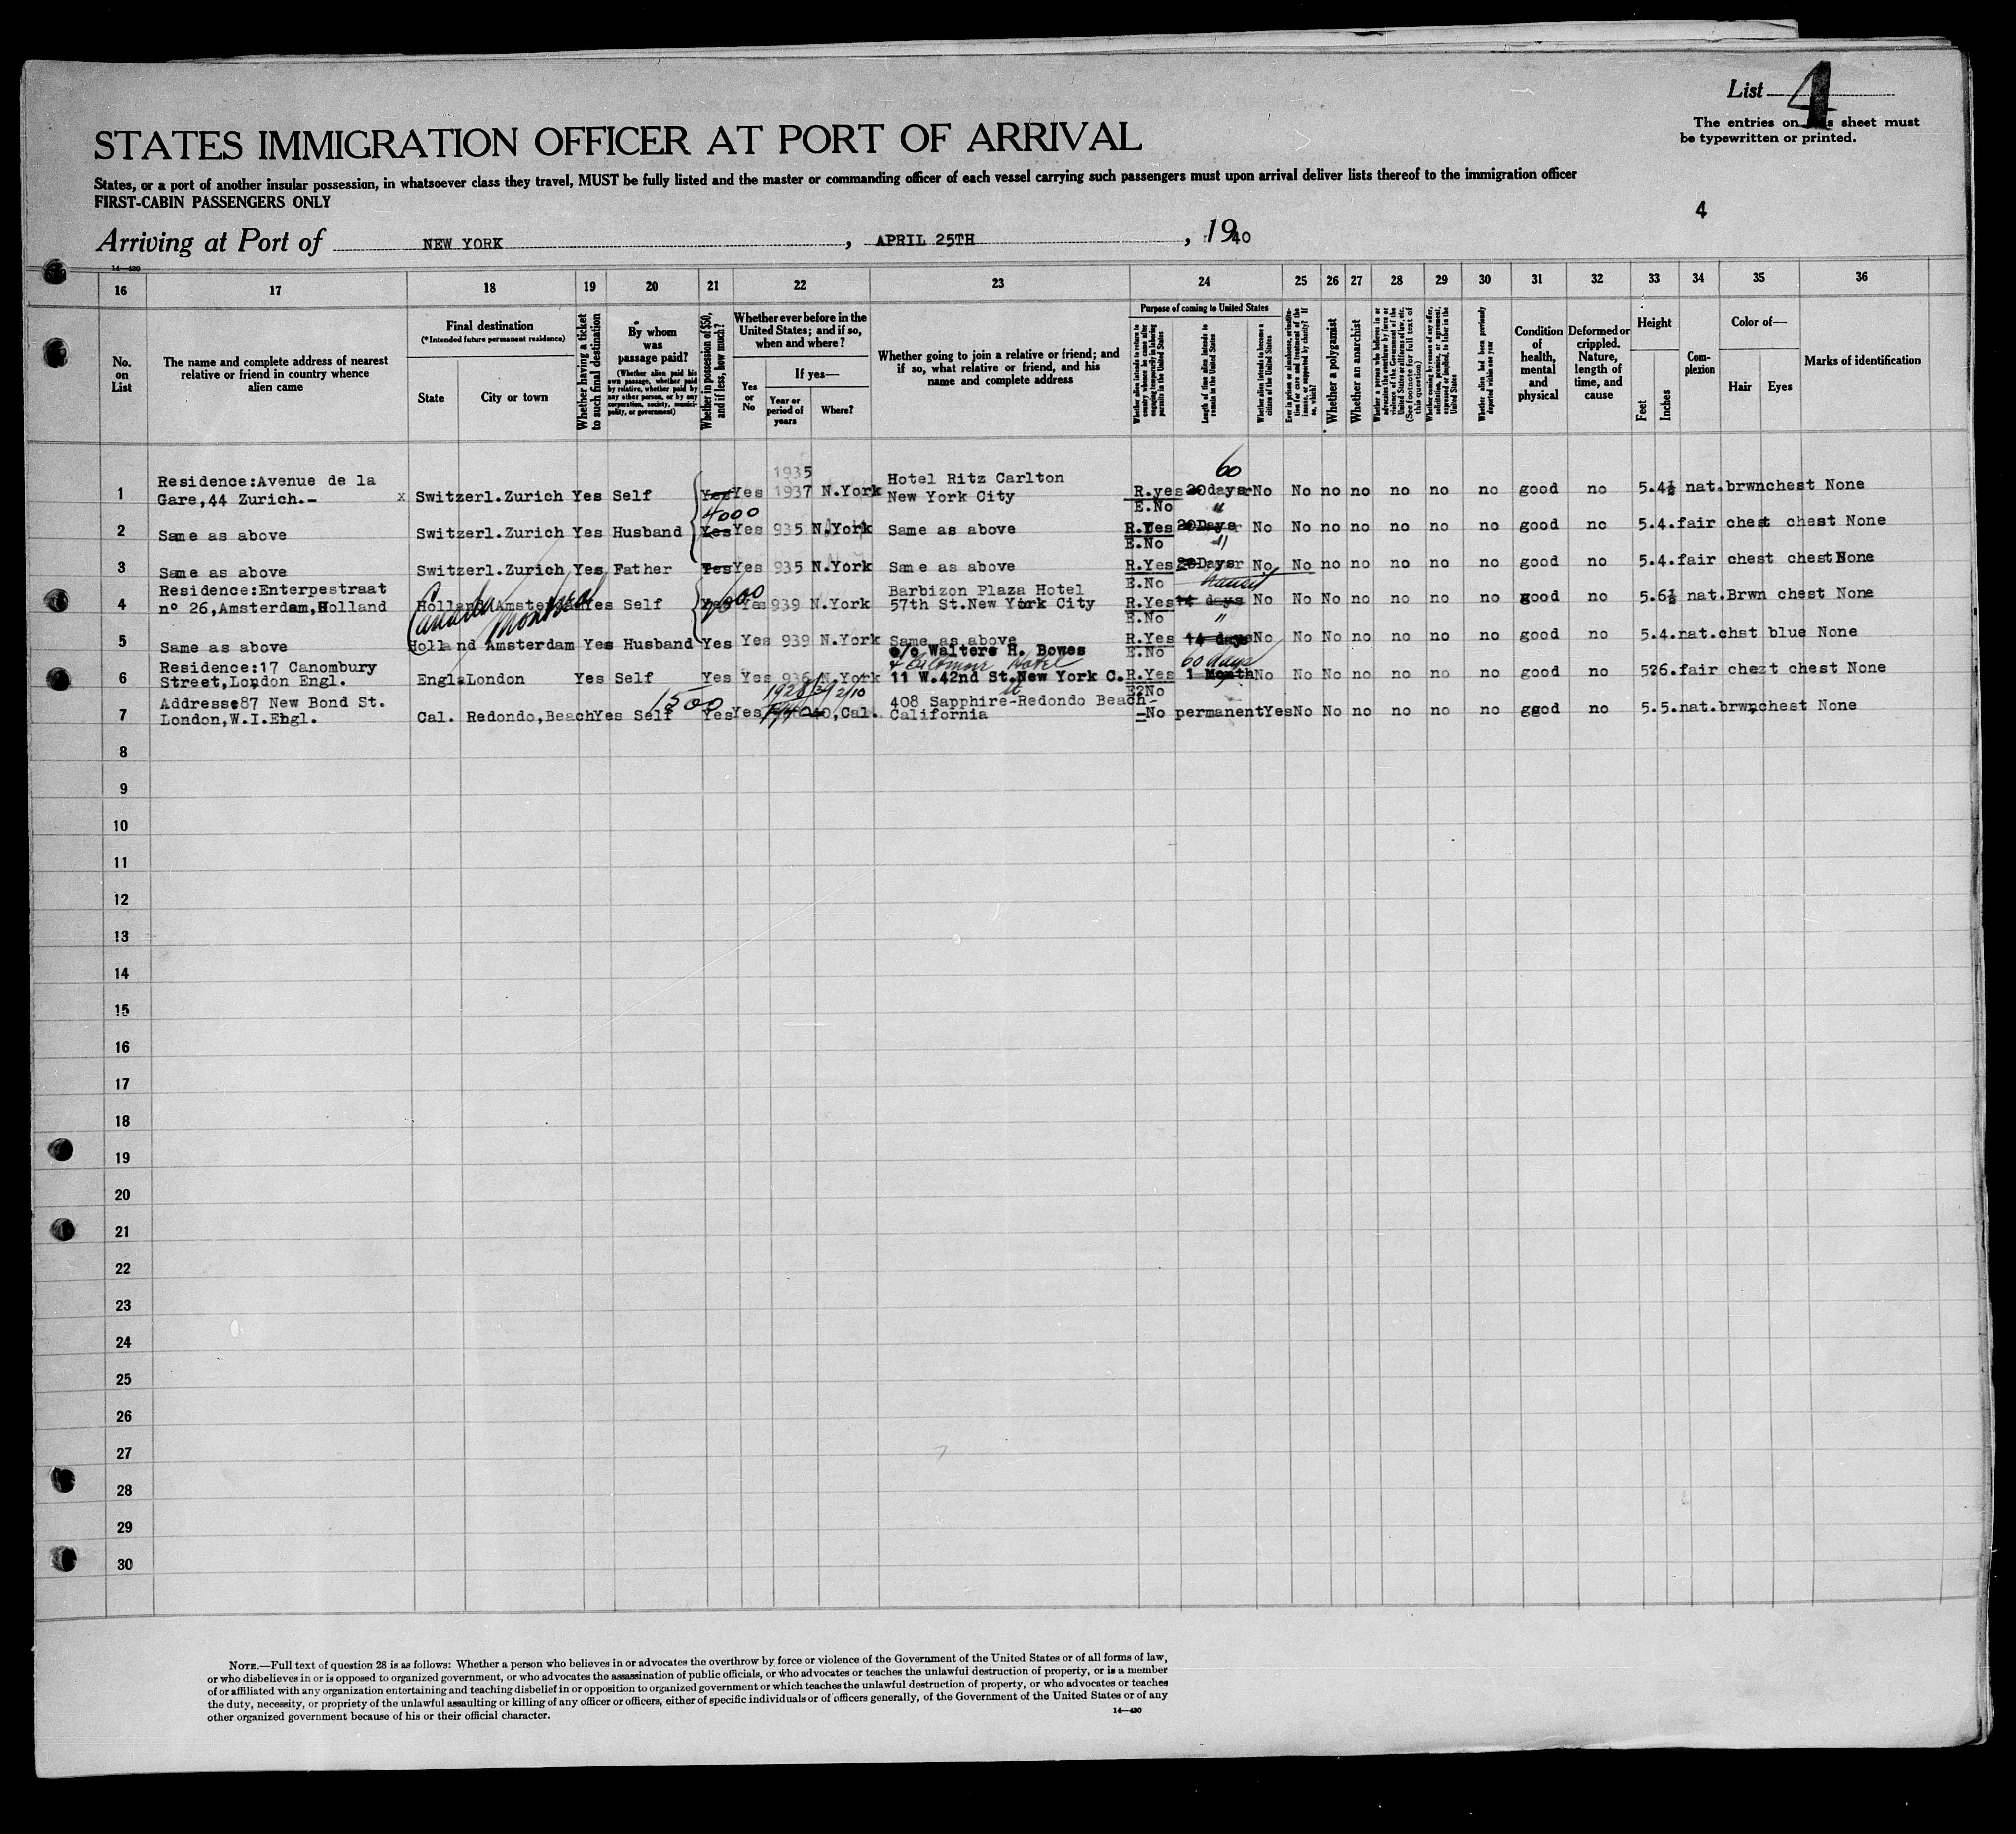 List 4
The entries on this sheet must
be typewritten or printed.
STATES IMMIGRATION OFFICER AT PORT OF ARRIVAL
States, or a port of another insular possession, in whatsoever class they travel, MUST be fully listed and the master or commanding officer of each vessel carrying such passengers must upon arrival deliver lists thereof to the immigration officer
FIRST-CABIN PASSENGERS ONLY
4
Arriving at Port of NEW YORK, APRIL 25TH, 1940
14—430
16 17 18 19 20 21 22 23 24 25 26 27 28 29 30 31 32 33 34 35 36
No. on List
The name and complete address of nearest relative or friend in country whence alien came
Final destination
(*Intended future permanent residence)
State
City or town
Whether having a ticket to such final destination
By whom was passage paid?
(Whether alien paid his own passage, whether paid by relative, whether paid by any other person, or by any corporation, society, municipality, or government)
Whether in possession of $50, and if less, how much?
Whether ever before in the United States; and if so, when and where?
Yes or No
If yes—
Year or period of years
Where?
Whether going to join a relative or friend; and if so, what relative or friend, and his name and complete address
Purpose of coming to United States
Whether alien intends to return to country whence he came after engaging temporarily in laboring pursuits in the United States
Length of time alien intends to remain in the United States
Whether alien intends to become a citizen of the United States
Ever in prison or almshouse, or institution for care and treatment of the insane, or supported by charity? If so, which?
Whether a polygamist
Whether an anarchist
Whether a person who believes in or advocates the overthrow by force or violence of the Government of the United States or all forms of law, etc. (See footnote for full text of this question)
Whether coming by reason of any offer, solicitation, promise, or agreement, expressed or implied, to labor in the United States
Whether alien had been previously deported within one year
Condition of health, mental and physical
Deformed or crippled. Nature, length of time, and cause
Height
Feet
Inches
Complexion
Color of—
Hair
Eyes
Marks of identification
1935 60
Residence:Avenue de la Hotel Ritz Carlton
1 Gare,44 Zurich.- x Switzerl.Zurich Yes Self Yes Yes 1937 N.York New York City R.yes 20days No No no no no no no good no 5.4½ nat.brwnchest None
4000 E.No "
2 Same as above Switzerl.Zurich Yes Husband Yes Yes 935 N.York Same as above R.Yes 20Days No No no no no no no good no 5.4.fair chest chest None
E.No "
3 Same as above Switzerl.Zurich Yes Father Yes Yes 935 N.York Same as above R.Yes 20Days No No no no no no no good no 5.4.fair chest chest None
Residence:Enterpestraat Barbizon Plaza Hotel E.No transit
4 nº 26,Amsterdam,Holland Holland Amsterdam Yes Self Yes Yes 939 N.York 57th St.New York City R.Yes 14 days No No No no no no no good no 5.6½ nat.Brwn chest None
Canada Montreal E.No "
5 Same as above Holland Amsterdam Yes Husband Yes Yes 939 N.York Same as above R.Yes 14 days No No No no no no no good no 5.4.nat.chst blue None
c/o Walters H. Bowes E.No
Residence:17 Canombury Hotel 60 days
6 Street,London Engl. Engl.London Yes Self Yes Yes 936 N.York 11 W.42nd St.New York C. R.Yes 1 Month No No No no no no no good no 5?6.fair chezt chest None
1500 1928 E?No
Addresse87 New Bond St. 408 Sapphire-Redondo Beach-
7 London,W.I.Ehgl. Cal. Redondo,Beach Yes Self Yes Yes ,Cal. California -No permanent Yes No No no no no no good no 5.5.nat.brwn,chest None
8
9
10
11
12
13
14
15
16
17
18
19
20
21
22
23
24
25
26
27
28
29
30
NOTE.—Full text of question 28 is as follows: Whether a person who believes in or advocates the overthrow by force or violence of the Government of the United States or of all forms of law,
or who disbelieves in or is opposed to organized government, or who advocates the assassination of public officials, or who advocates or teaches the unlawful destruction of property, or is a member
of or affiliated with any organization entertaining and teaching disbelief in or opposition to organized government or which teaches the unlawful destruction of property, or who advocates or teaches
the duty, necessity, or propriety of the unlawful assaulting or killing of any officer or officers, either of specific individuals or of officers generally, of the Government of the United States or of any
other organized government because of his or their official character.
14—430